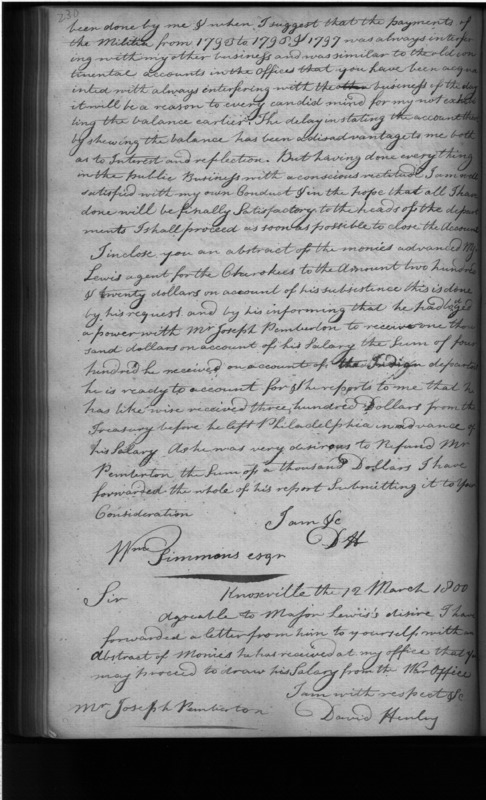 230
been done by me & when I suggest that the payments of
the Militia from 1793 to 1795 & 1797 was always interfer
ing with my other business and was similar to the old con
tinental accounts in the offices that you have been acqua
inted with always interfering with the business of the day
it will be a reason to every candid mind for my not
ting the balance earlier. The delay in stating the account there
by shewing the balance has been a disadvantage to me both
as to Interest and reflection. But having done everything
in the public Business with a conscious rectitude I am well
satisfied with my own Conduct & in the hope that all I have
done will be finally Satisfactory to the heads of the depart
ments I shall proceed as soon as possible to close the Account
I inclose you an abstract of the monies advanced Mr
Lewis agent for the Cherokees to the Amount two hundred
& twenty dollars on account of his subsistence this is done
by his request and by his informing that he had lodged
a power with Mr Joseph Pemberton to receive one thou
sand dollars on account of his Salary the Sum of four
hundred he received on account of the Indian department
he is ready to account for & he reports to me that he
has likewise received three hundred Dollars from the
Treasury before he left Philadelphia in advance of
his Salary. As he was very desirous to Refund Mr
Pemberton the Sum of a thousand Dollars I have
forwarded the whole of his report Submitting it to your
Consideration
I am &c
DH
Wm Simmons esqr
Knoxville the 12 March 1800
Sir
Agreable to Major Lewis's desire I have
forwarded a letter from him to yourself with an
Abstract of Monies he has received at my office that you
may proceed to draw his Salary from the War Office
I am with respect &c
Mr Joseph Pemberton David Henley